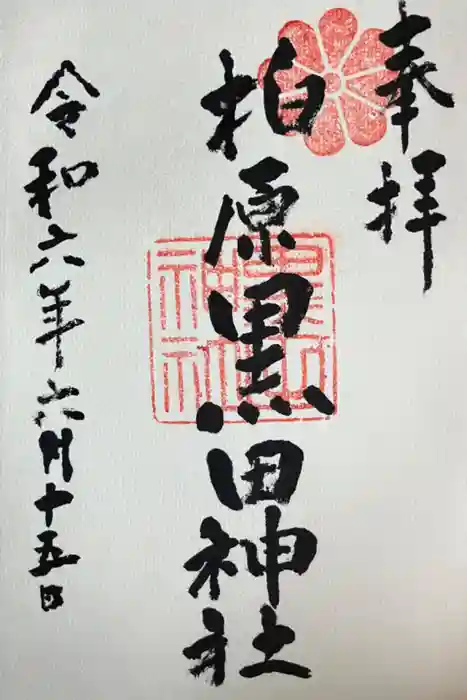 奉拝
柏原黒田神社
黒田神社
令和六年六月十五日